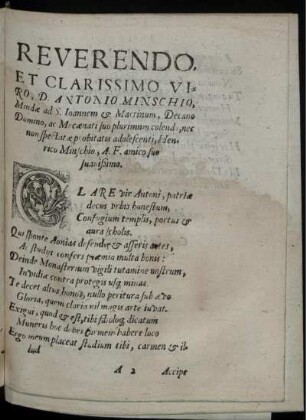 REVERENDO,
ET CLARISSIMO VI-
RO, D. ANTONIO MINSCHIO,
Mindæ ad S. Ioannem & Martinum, Decano
Domino, ac Mecænati suo plurimum colendo, nec
non spectatæ probitatis adolescenti, Hen-
rico Minschio, A. F. amico suo
suauissimo.
CLARE vir Antoni, patriæ
decus vrbis honestum,
Confugium templis, portus &
aura scholis.
Qui sponte Aonias defendis & asseris artes,
A studijs confers præmia multa bonis:
Deinde Monasterium vigili tutamine nostrum,
Inuidiæ contra protegis usq minas.
Te decet altus honos, nullo peritura sub æuo
Gloria, quem claris vel magis arte iuuat.
Exigua, quod & est, tibi dicatum
Muneris hoc debet carmen habere loco
Ergo meum placeat studium tibi, carmen & il-
lud
A 2 Accipe